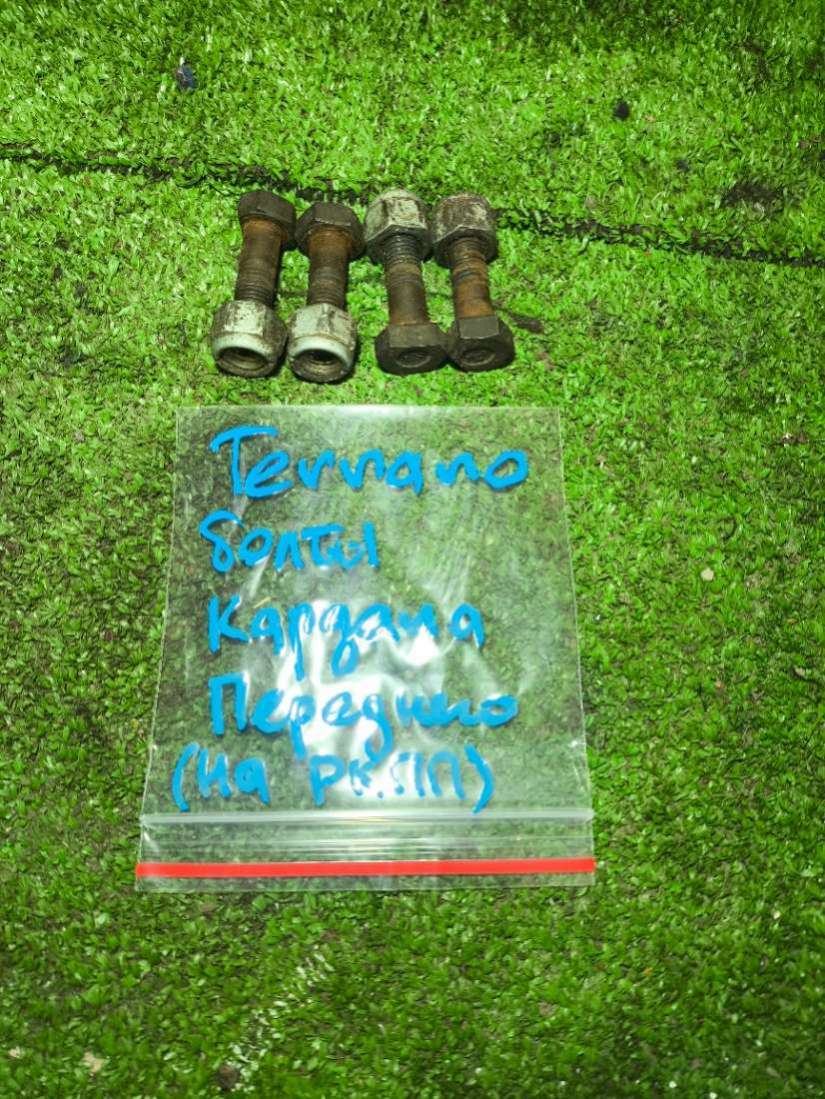 Terrano
болты
Кардана
Переднего
(на РК.ПП)